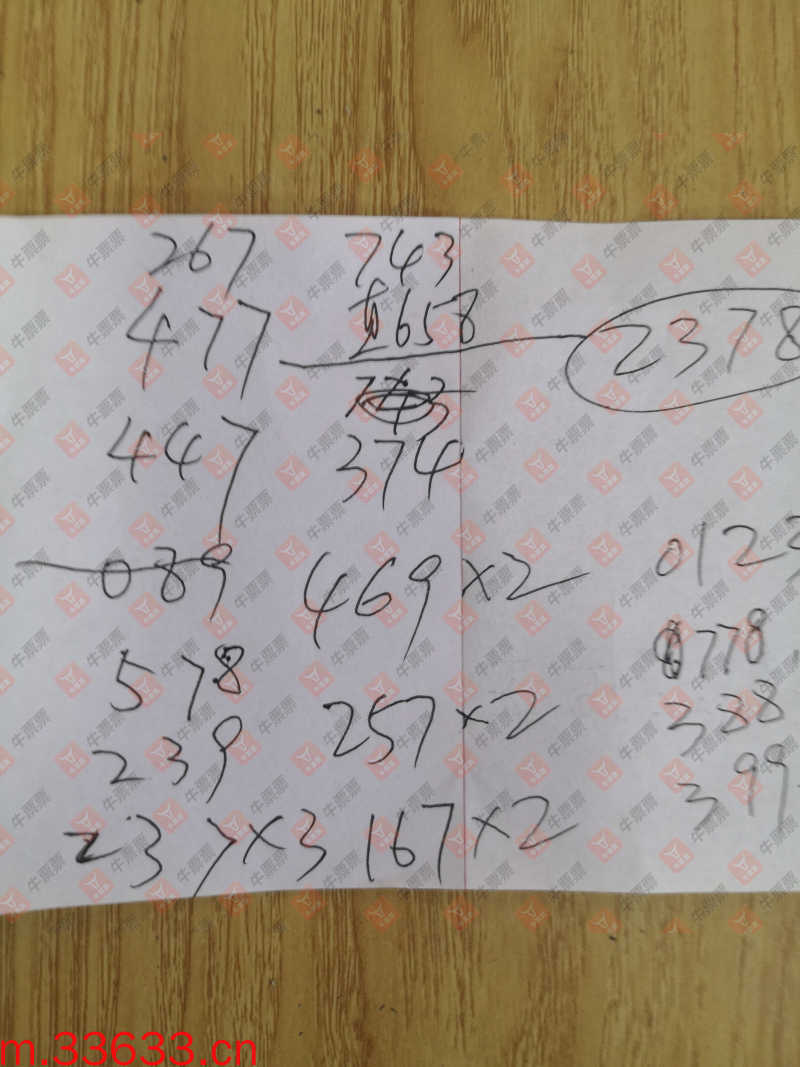 267
477
447
089
578
239
237×3
743
658
374
469×2
257×2
167×2
2378
0123
778
338
399
牛票票
m.33633.cn